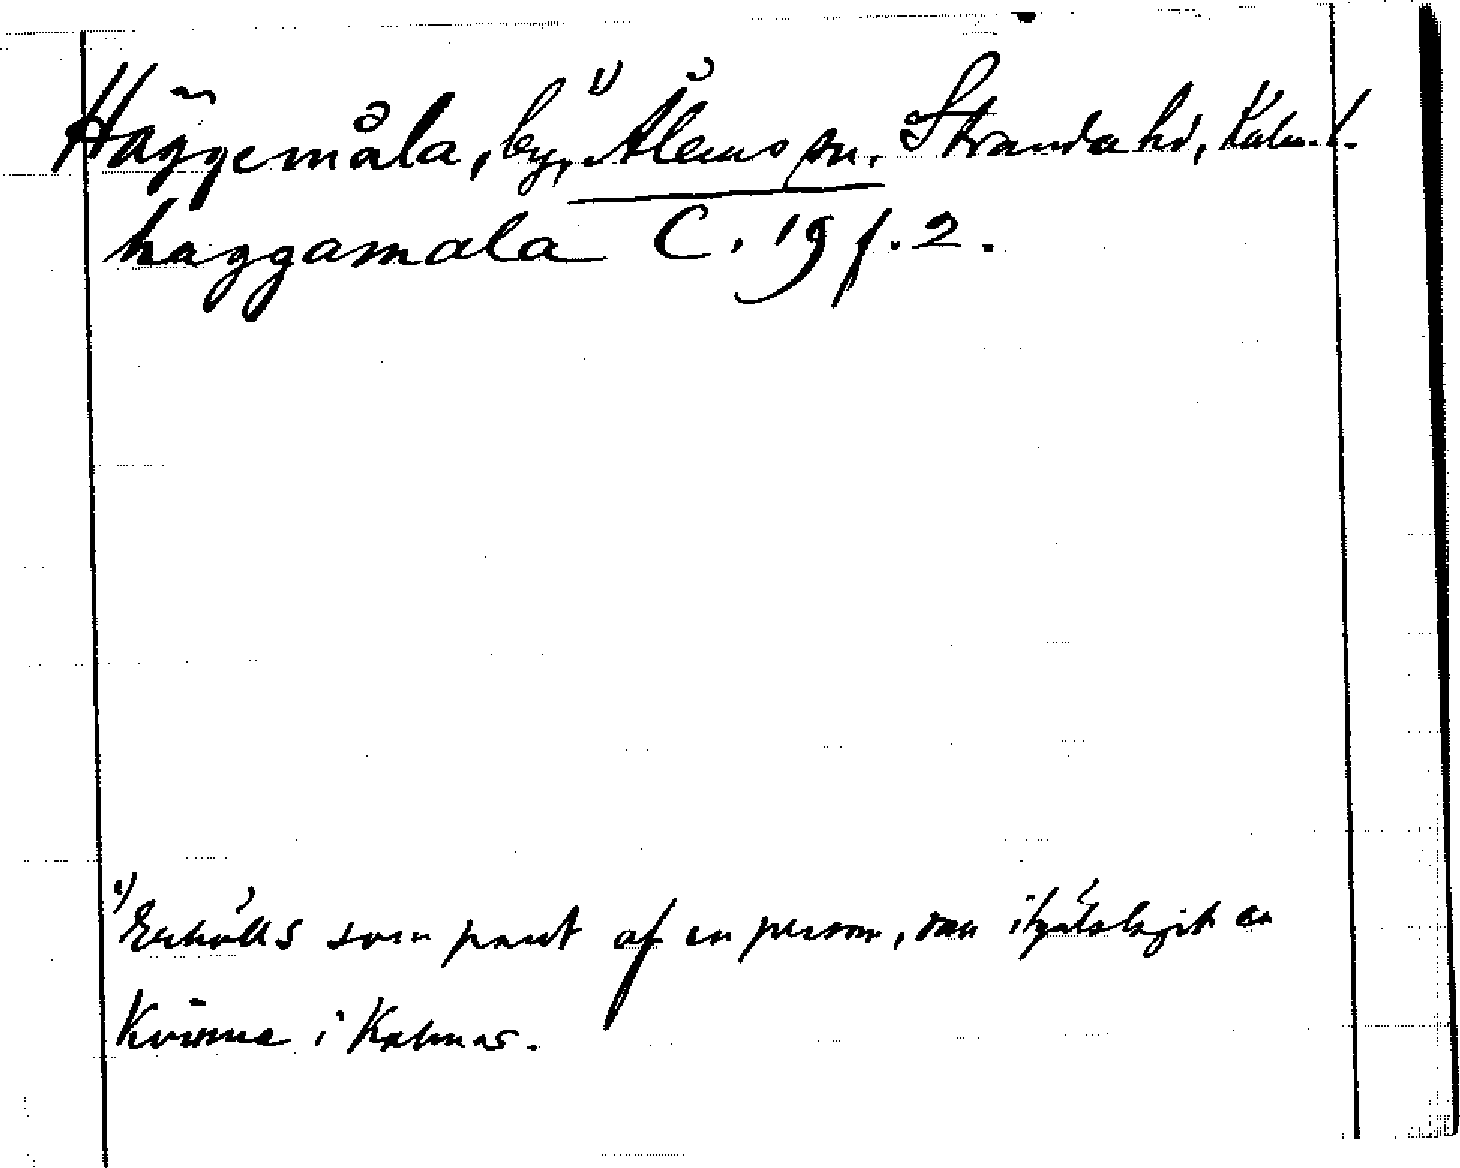 Häggemåla, by,¹⁾ Ålems sn. Stranda hd, Kalm. l.
haggamala C. 19 f. 2.
¹⁾ Erhölls som pant af en person, som ihjälslagit en
Kvinna i Kalmar.